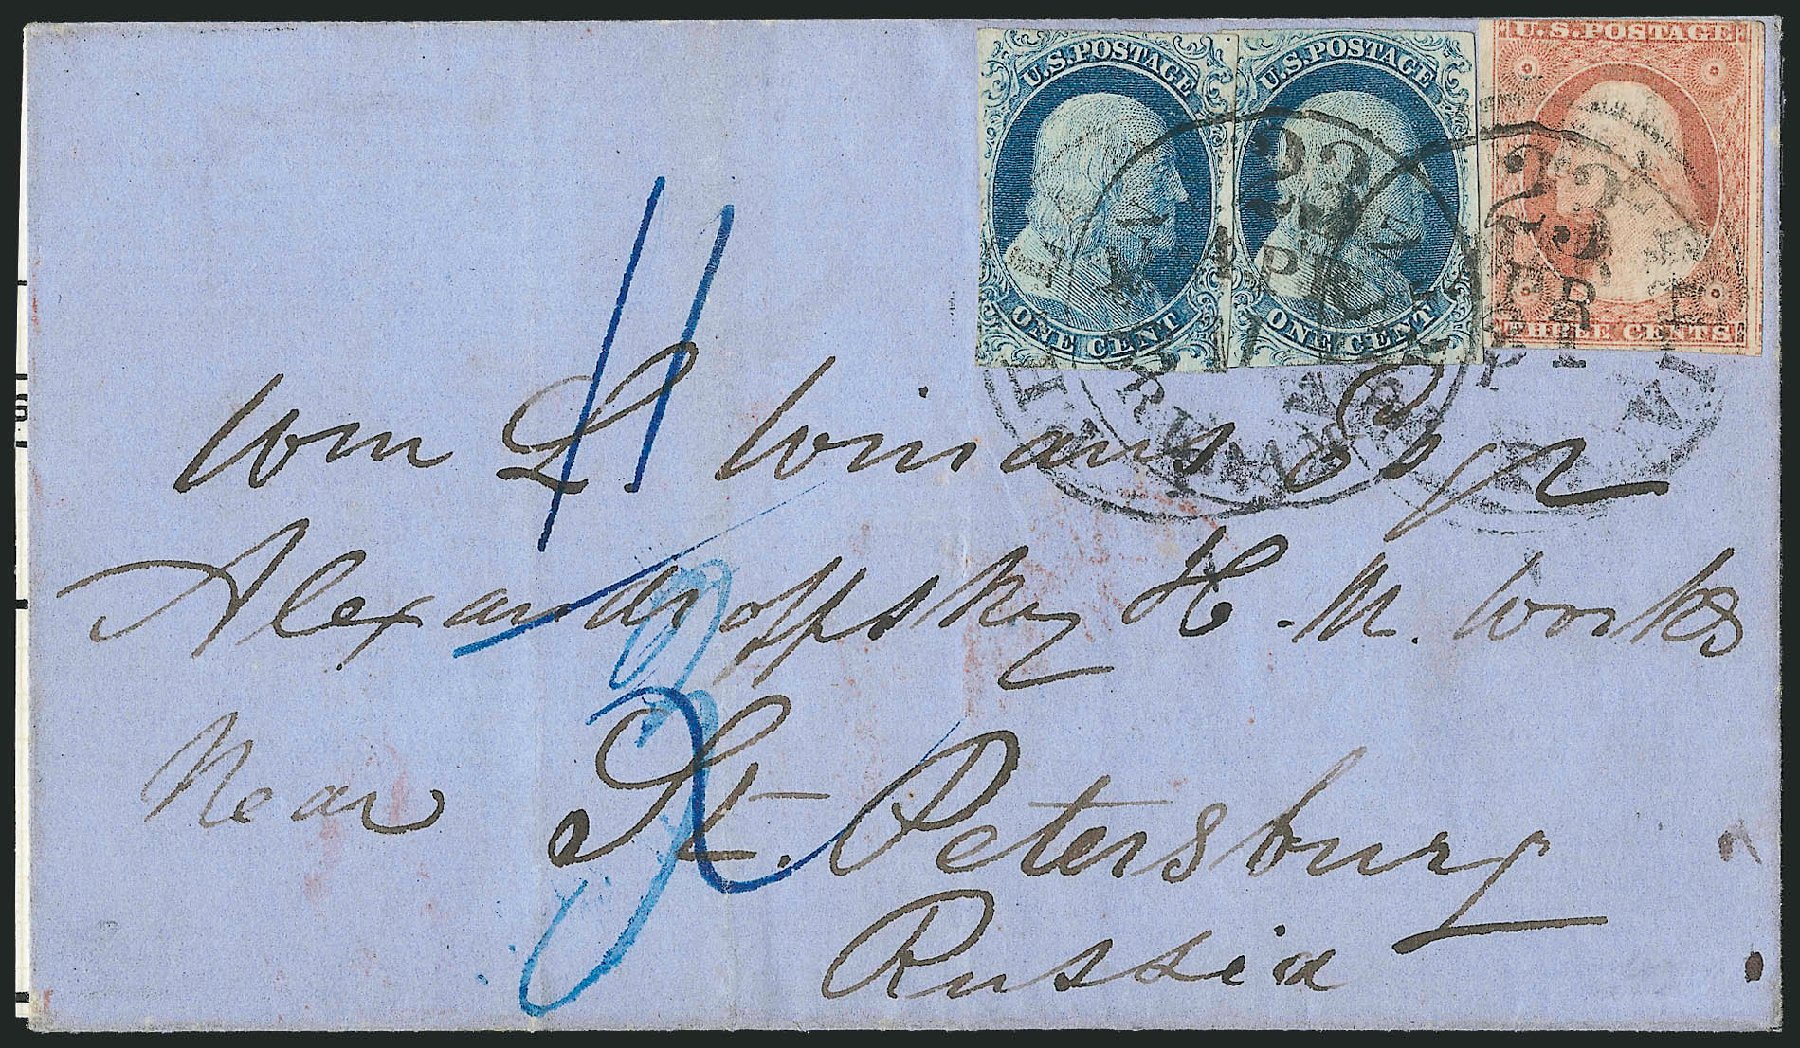 U.S. POSTAGE U.S. POSTAGE U.S. POSTAGE
23 23
APR APR
ONE CENT ONE CENT THREE CENTS
11
Wm L. Winans Esqr
Alexandroffsky H. M. Works
Near St. Petersburg
Russia